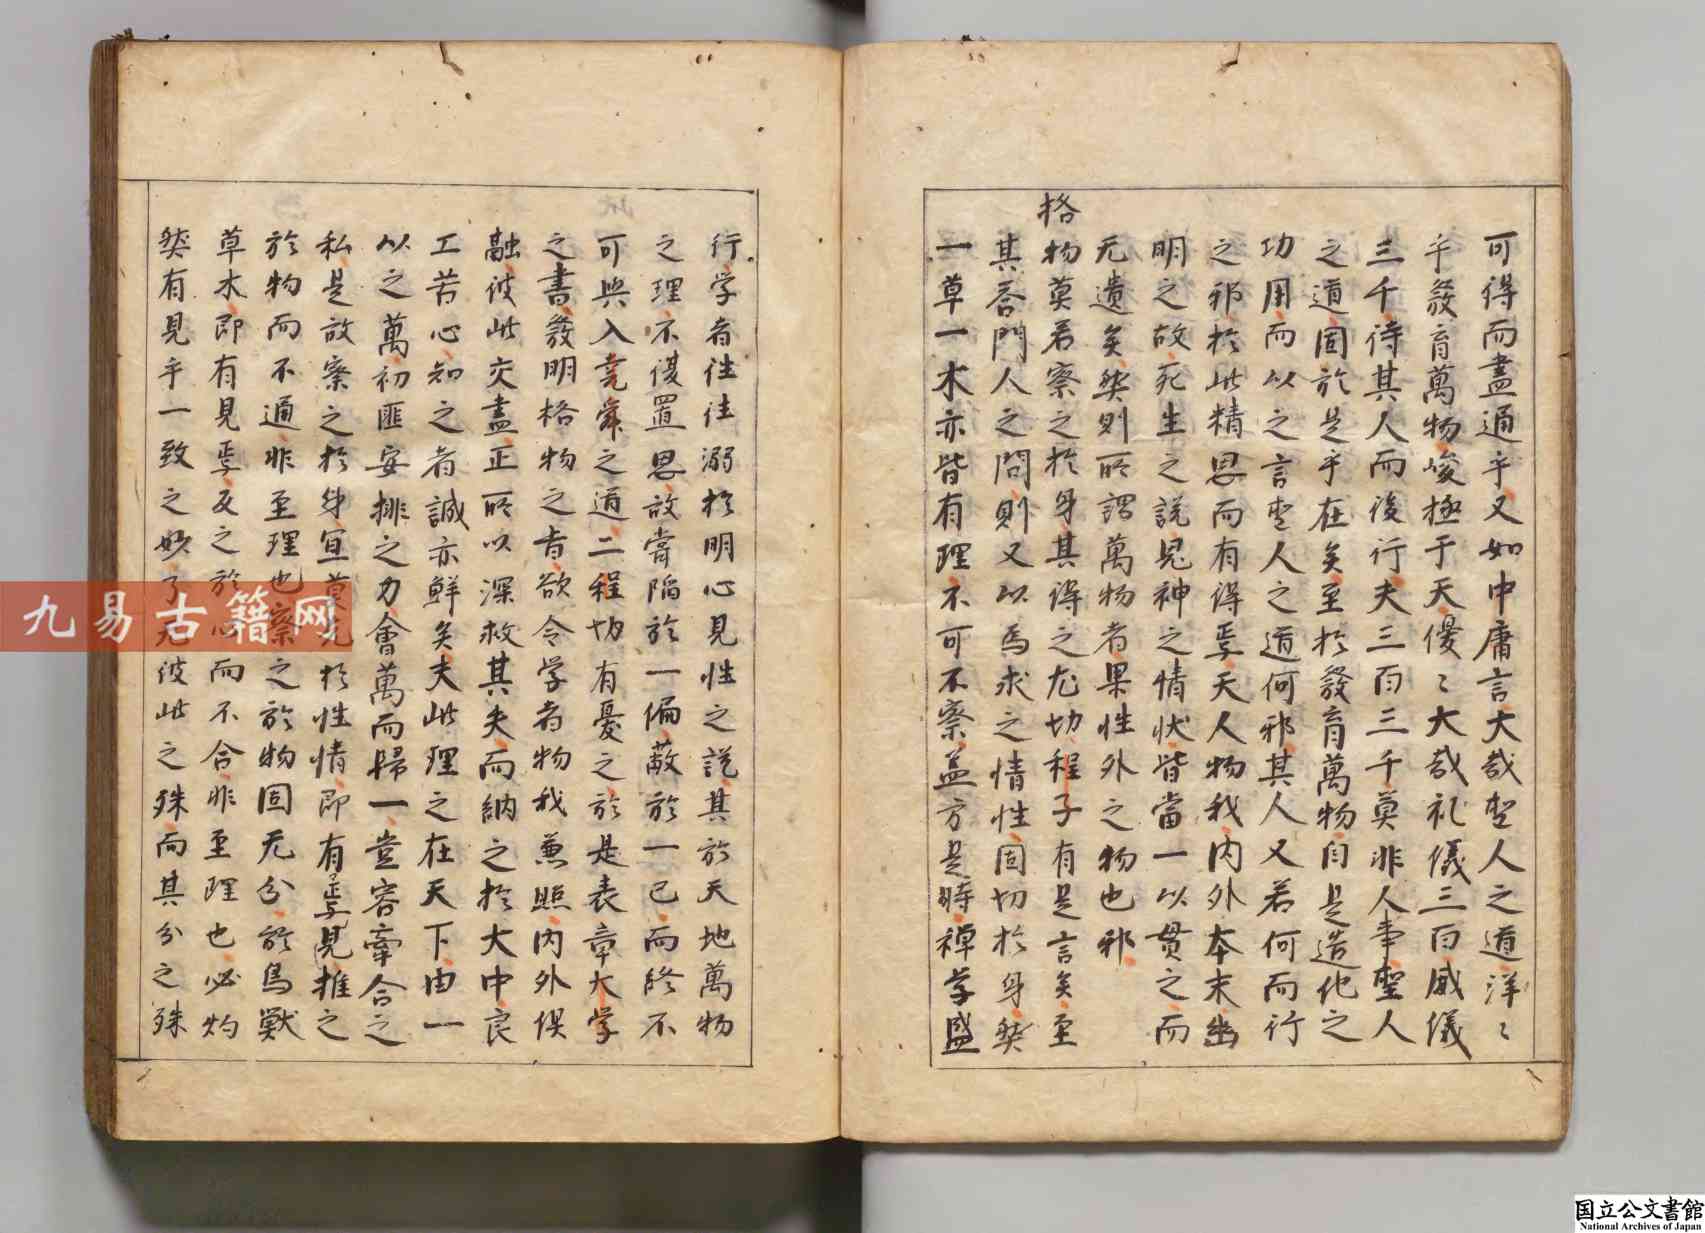 可得而盡通乎又如中庸言大哉聖人之道洋〻
乎發育萬物峻極于天優〻大哉礼儀三百威儀
三千待其人而後行夫三百三千莫非人事聖人
之道固於是乎在矣至於發育萬物自是造化之
功用而以之言聖人之道何邪其人又若何而行
之邪於此精思而有得焉天人物我內外本末幽
明之故死生之說鬼神之情狀皆當一以贯之而
无遺矣然則所謂萬物者果性外之物也邪
格物莫若察之於身其得之尤切程子有是言矣至
其答門人之問則又以爲求之情性固切於身然
一草一木亦皆有理不可不察盖方是時禅学盛
行学者往往溺於明心見性之說其於天地萬物
之理不復置思故常陷於一偏蔽於一己而終不
可與入堯舜之道二程切有憂之於是表章大学
之書發明格物之旨欲令学者物我兼照內外俱
融彼此交盡正所以深救其失而納之於大中良
工苦心知之者誠亦鮮矣夫此理之在天下由一
以之萬初匪安排之力會萬而歸一豈容牽合之
私是故察之於身宜莫先於性情即有焉見推之
於物而不通非至理也察之於物固无分於鳥獸
草木即有見焉反之於心而不合非至理也必灼
然有見乎一致之妙了无彼此之殊而其分之殊
九易古籍网
国立公文書館
National Archives of Japan